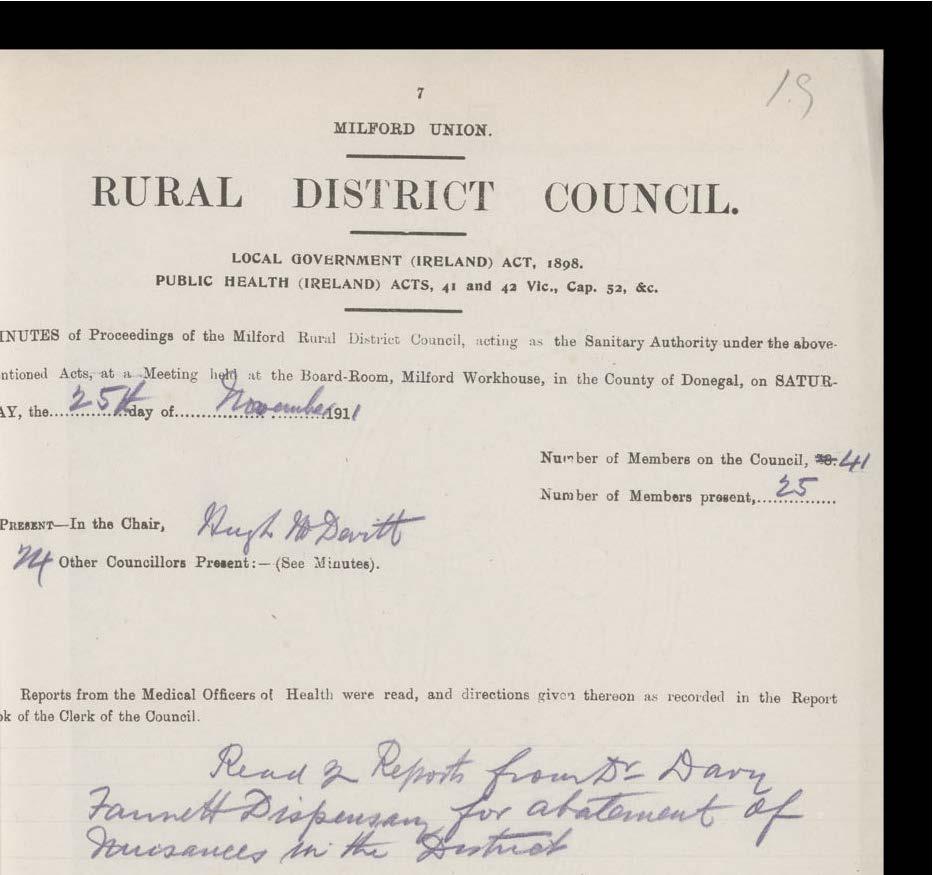 19
7
MILFORD UNION.
RURAL DISTRICT COUNCIL.
LOCAL GOVERNMENT (IRELAND) ACT, 1898.
PUBLIC HEALTH (IRELAND) ACTS, 41 and 42 Vic., Cap. 52, &c.
INUTES of Proceedings of the Milford Rural District Council, acting as the Sanitary Authority under the above-
ntioned Acts, at a Meeting held at the Board-Room, Milford Workhouse, in the County of Donegal, on SATUR-
AY, the 25th day of November 1911
Number of Members on the Council, 28. 41
Number of Members present, 25
PRESENT—In the Chair, Hugh McDevitt
24 Other Councillors Present:—(See Minutes).
Reports from the Medical Officers of Health were read, and directions given thereon as recorded in the Report
ok of the Clerk of the Council.
Read 2 Reports from Dr Davy
Fannett Dispensary for abatement of
Nuisances in the District